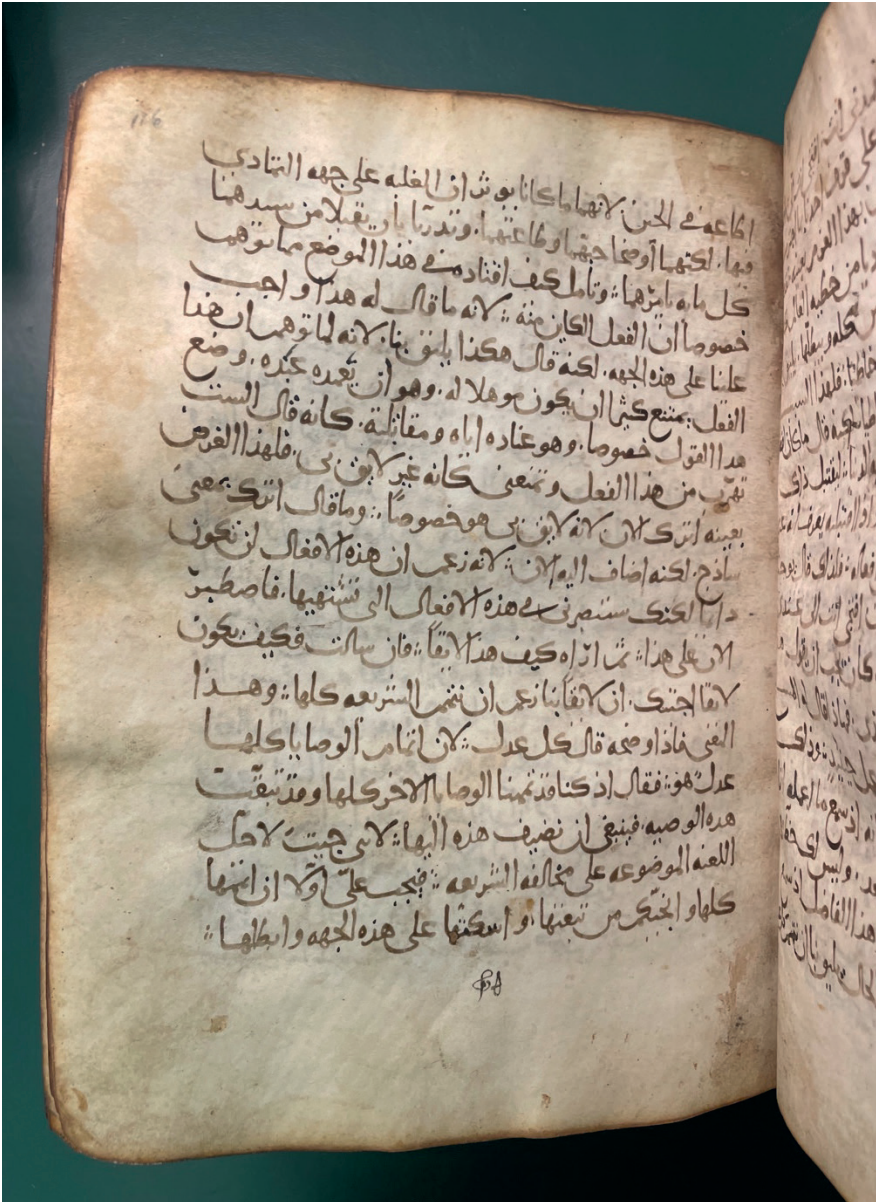 116
اطاعه في الحين. لانهما ما كانا يوثران الغلبه على جهه التمادي
فيها. لكنهما أوضحا حبهما وطاعتهما. وتدربا بان يقبلا من سيدهما
كل ما به يامرهما: وتامل كيف اقتاده في هذا الموضع مما توهم
خصوصاً ان الفعل الكاين منه: لانه ما قال له هذا واجب
علينا على هذه الجهه. لكنه قال هكذا يليق بنا. لانه لما توهم ان هذا
الفعل يمتنع كثيرا ان يكون موهلا له. وهو ان يعمده عبده. وضع
هدا القول خصوصا. وهو عناده اياه ومقابلته. كانه قال الست
تهرب من هذا الفعل وتمتنعني كانه غير لايق بي. فلهذا الغرض
بعينه اترك الان لانه لايق بي هو خصوصاً: وما قال اترك بمعنى
ساذج. لكنه اضاف اليه الان: لانه زعم ان هذه الافعال لن تكون
دايما لكنك ستبصرني في هذه الافعال التي تشتهيها. فاصطبر
الان على هذا: ثم اراه كيف هدا لايقاً: فان سالت فكيف يكون
لايقا اجبتك. ان لايقاً بنا زعم ان نتمم الشريعه كلها: وهذا
المعنى فاذ اوضحه قال كل عدل: لان اتمام الوصايا كلها
عدل هو: فقال اذ كنا قد تممنا الوصايا الاخر كلها وقد تبقت
هده الوصيه. فينبغي ان نضيف هذه اليها: لانني جيت لاحل
اللعنه الموضوعه على مخالفه الشريعه: فيجب عليّ اوّلا ان اتممها
كلها و من تبعتها. و على هذه الجهه وابطلها: